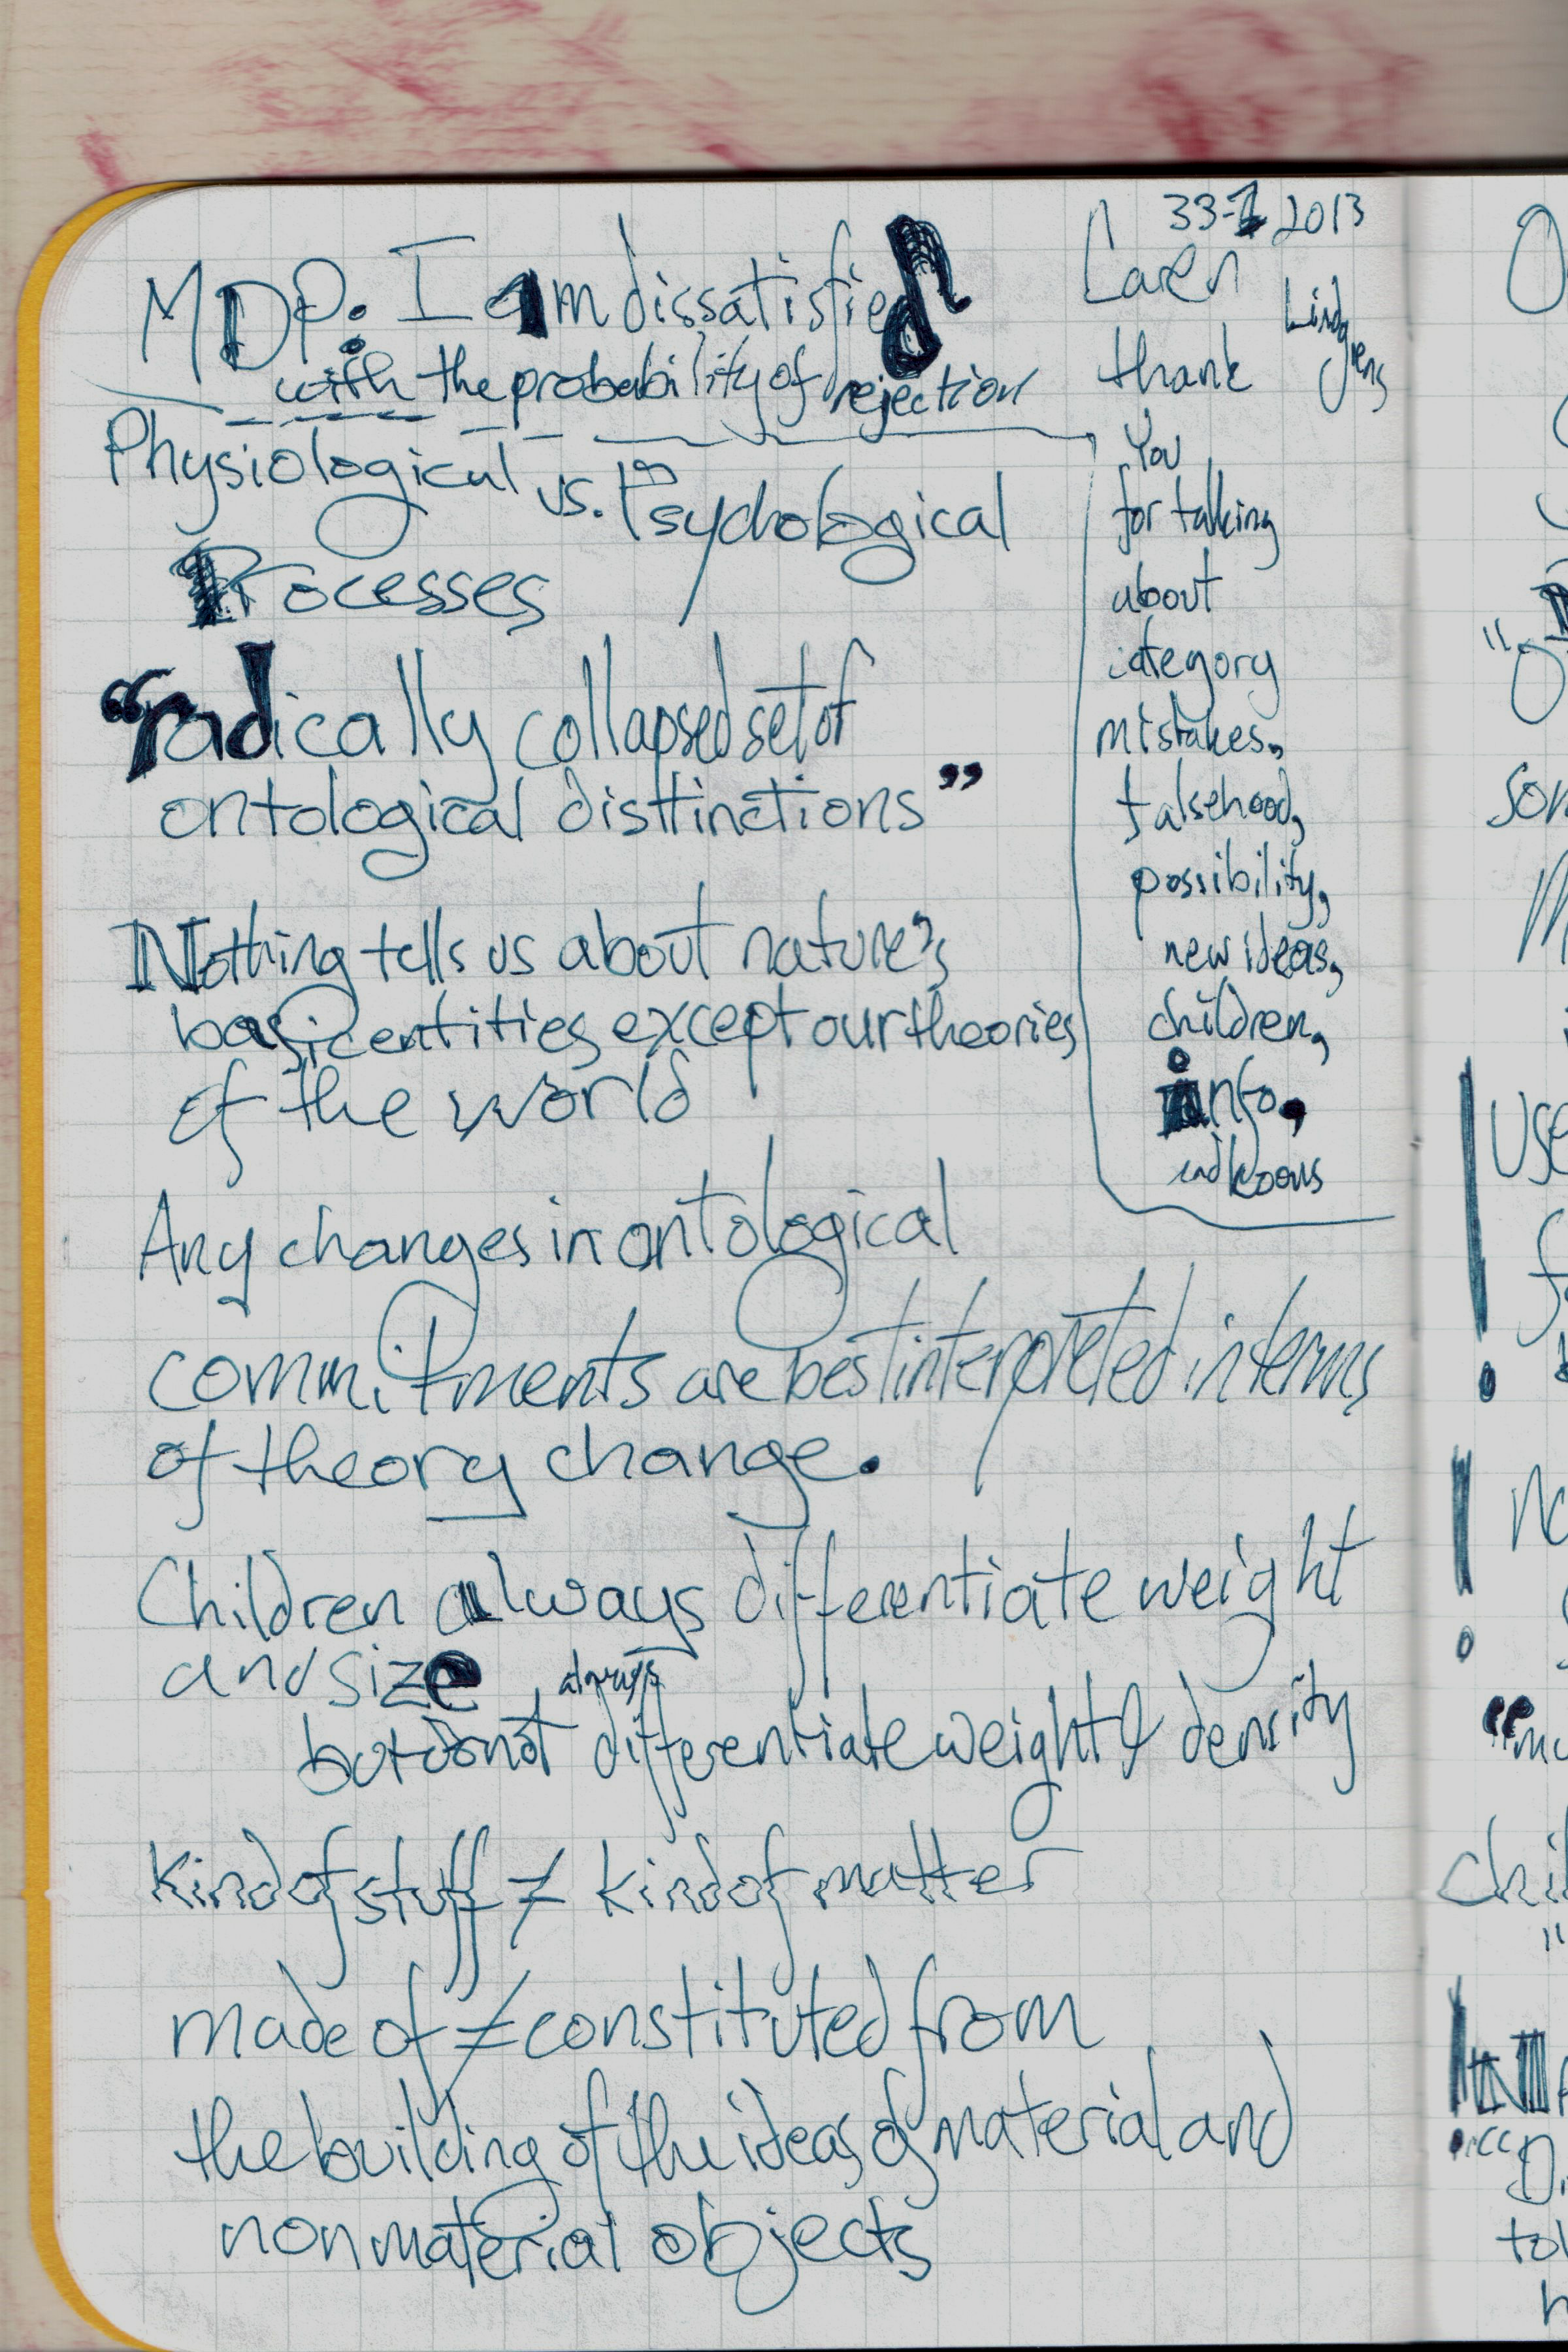 33-1 2013
MDP: I am dissatisfied
with the probability of rejection
Physiological vs. Psychological
Processes
"radically collapsed set of
ontological disttinctions"
Nothing tells us about nature's
basic entities except our theories
of the world
Any changes in ontological
commitments are best interpreted in terms
of theory change.
Children always differentiate weight
and size
always
but do not differentiate weight & density
Kind of stuff ≠ kind of matter
made of ≠ constituted from
the building of the ideas of material and
nonmaterial objects
Caren
Lindgrens
thank
You
for talking
about
category
mistakes,
falsehood,
possibility,
new ideas,
children,
info,
and
O
"O
som
Use
N
"mu
chil
Di